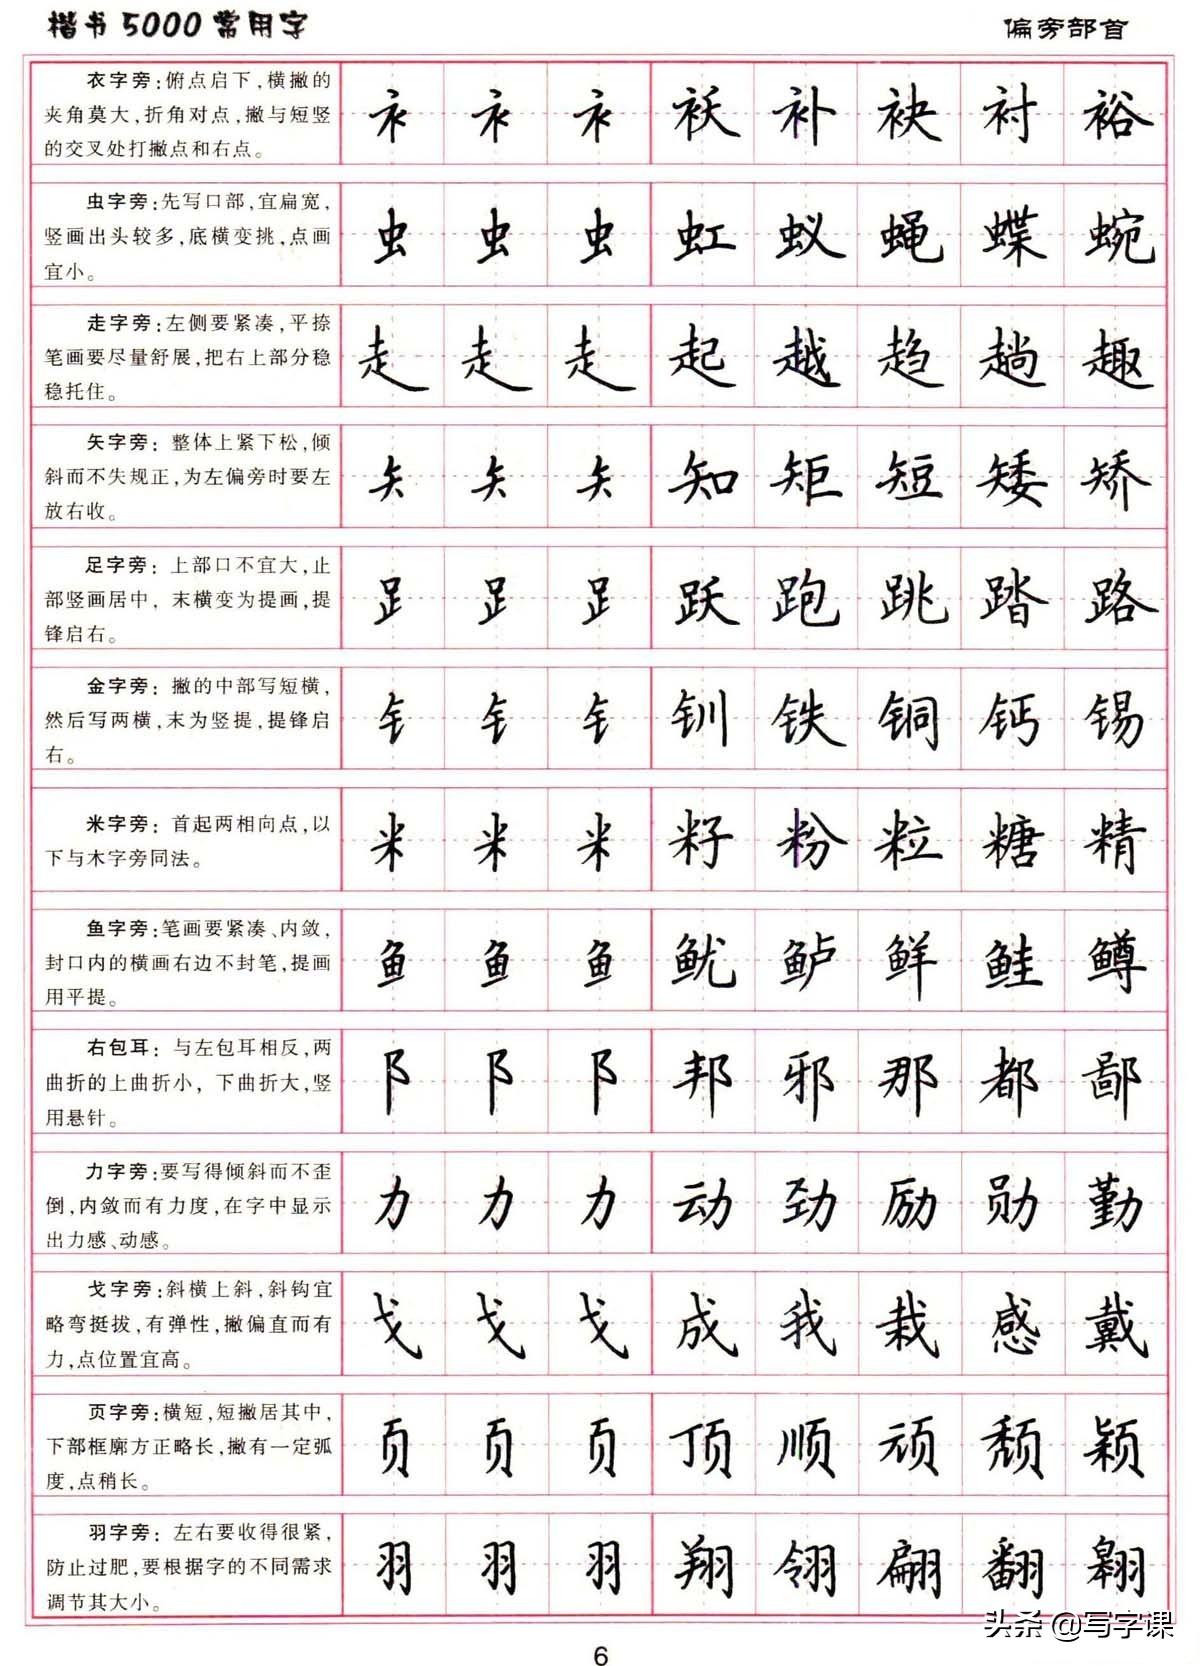 楷书5000常用字
偏旁部首
衣字旁:俯点启下,横撇的
夹角莫大,折角对点,撇与短竖
的交叉处打撇点和右点。
衤 衤 衤 袄 补 袂 衬 裕
虫字旁:先写口部,宜扁宽,
竖画出头较多,底横变挑,点画
宜小。
虫 虫 虫 虹 蚁 蝇 蝶 蜿
走字旁:左侧要紧凑,平捺
笔画要尽量舒展,把右上部分稳
稳托住。
走 走 走 起 越 趋 趟 趣
矢字旁:整体上紧下松,倾
斜而不失规正,为左偏旁时要左
放右收。
矢 矢 矢 知 矩 短 矮 矫
足字旁:上部口不宜大,止
部竖画居中,末横变为提画,提
锋启右。
𧾷 𧾷 𧾷 跃 跑 跳 踏 路
金字旁:撇的中部写短横,
然后写两横,末为竖提,提锋启
右。
钅 钅 钅 钏 铁 铜 钙 锡
米字旁:首起两相向点,以
下与木字旁同法。
米 米 米 籽 粉 粒 糖 精
鱼字旁:笔画要紧凑、内敛,
封口内的横画右边不封笔,提画
用平提。
鱼 鱼 鱼 鱿 鲈 鲜 鲑 鳟
右包耳:与左包耳相反,两
曲折的上曲折小,下曲折大,竖
用悬针。
阝 阝 阝 邦 邪 那 都 鄙
力字旁:要写得倾斜而不歪
倒,内敛而有力度,在字中显示
出力感、动感。
力 力 力 动 劲 励 勋 勤
戈字旁:斜横上斜,斜钩宜
略弯挺拔,有弹性,撇偏直而有
力,点位置宜高。
戈 戈 戈 成 我 栽 感 戴
页字旁:横短,短撇居其中,
下部框廓方正略长,撇有一定弧
度,点稍长。
页 页 页 顶 顺 顽 颓 颖
羽字旁:左右要收得很紧,
防止过肥,要根据字的不同需求
调节其大小。
羽 羽 羽 翔 翎 翩 翻 翱
头条 @写字课
6